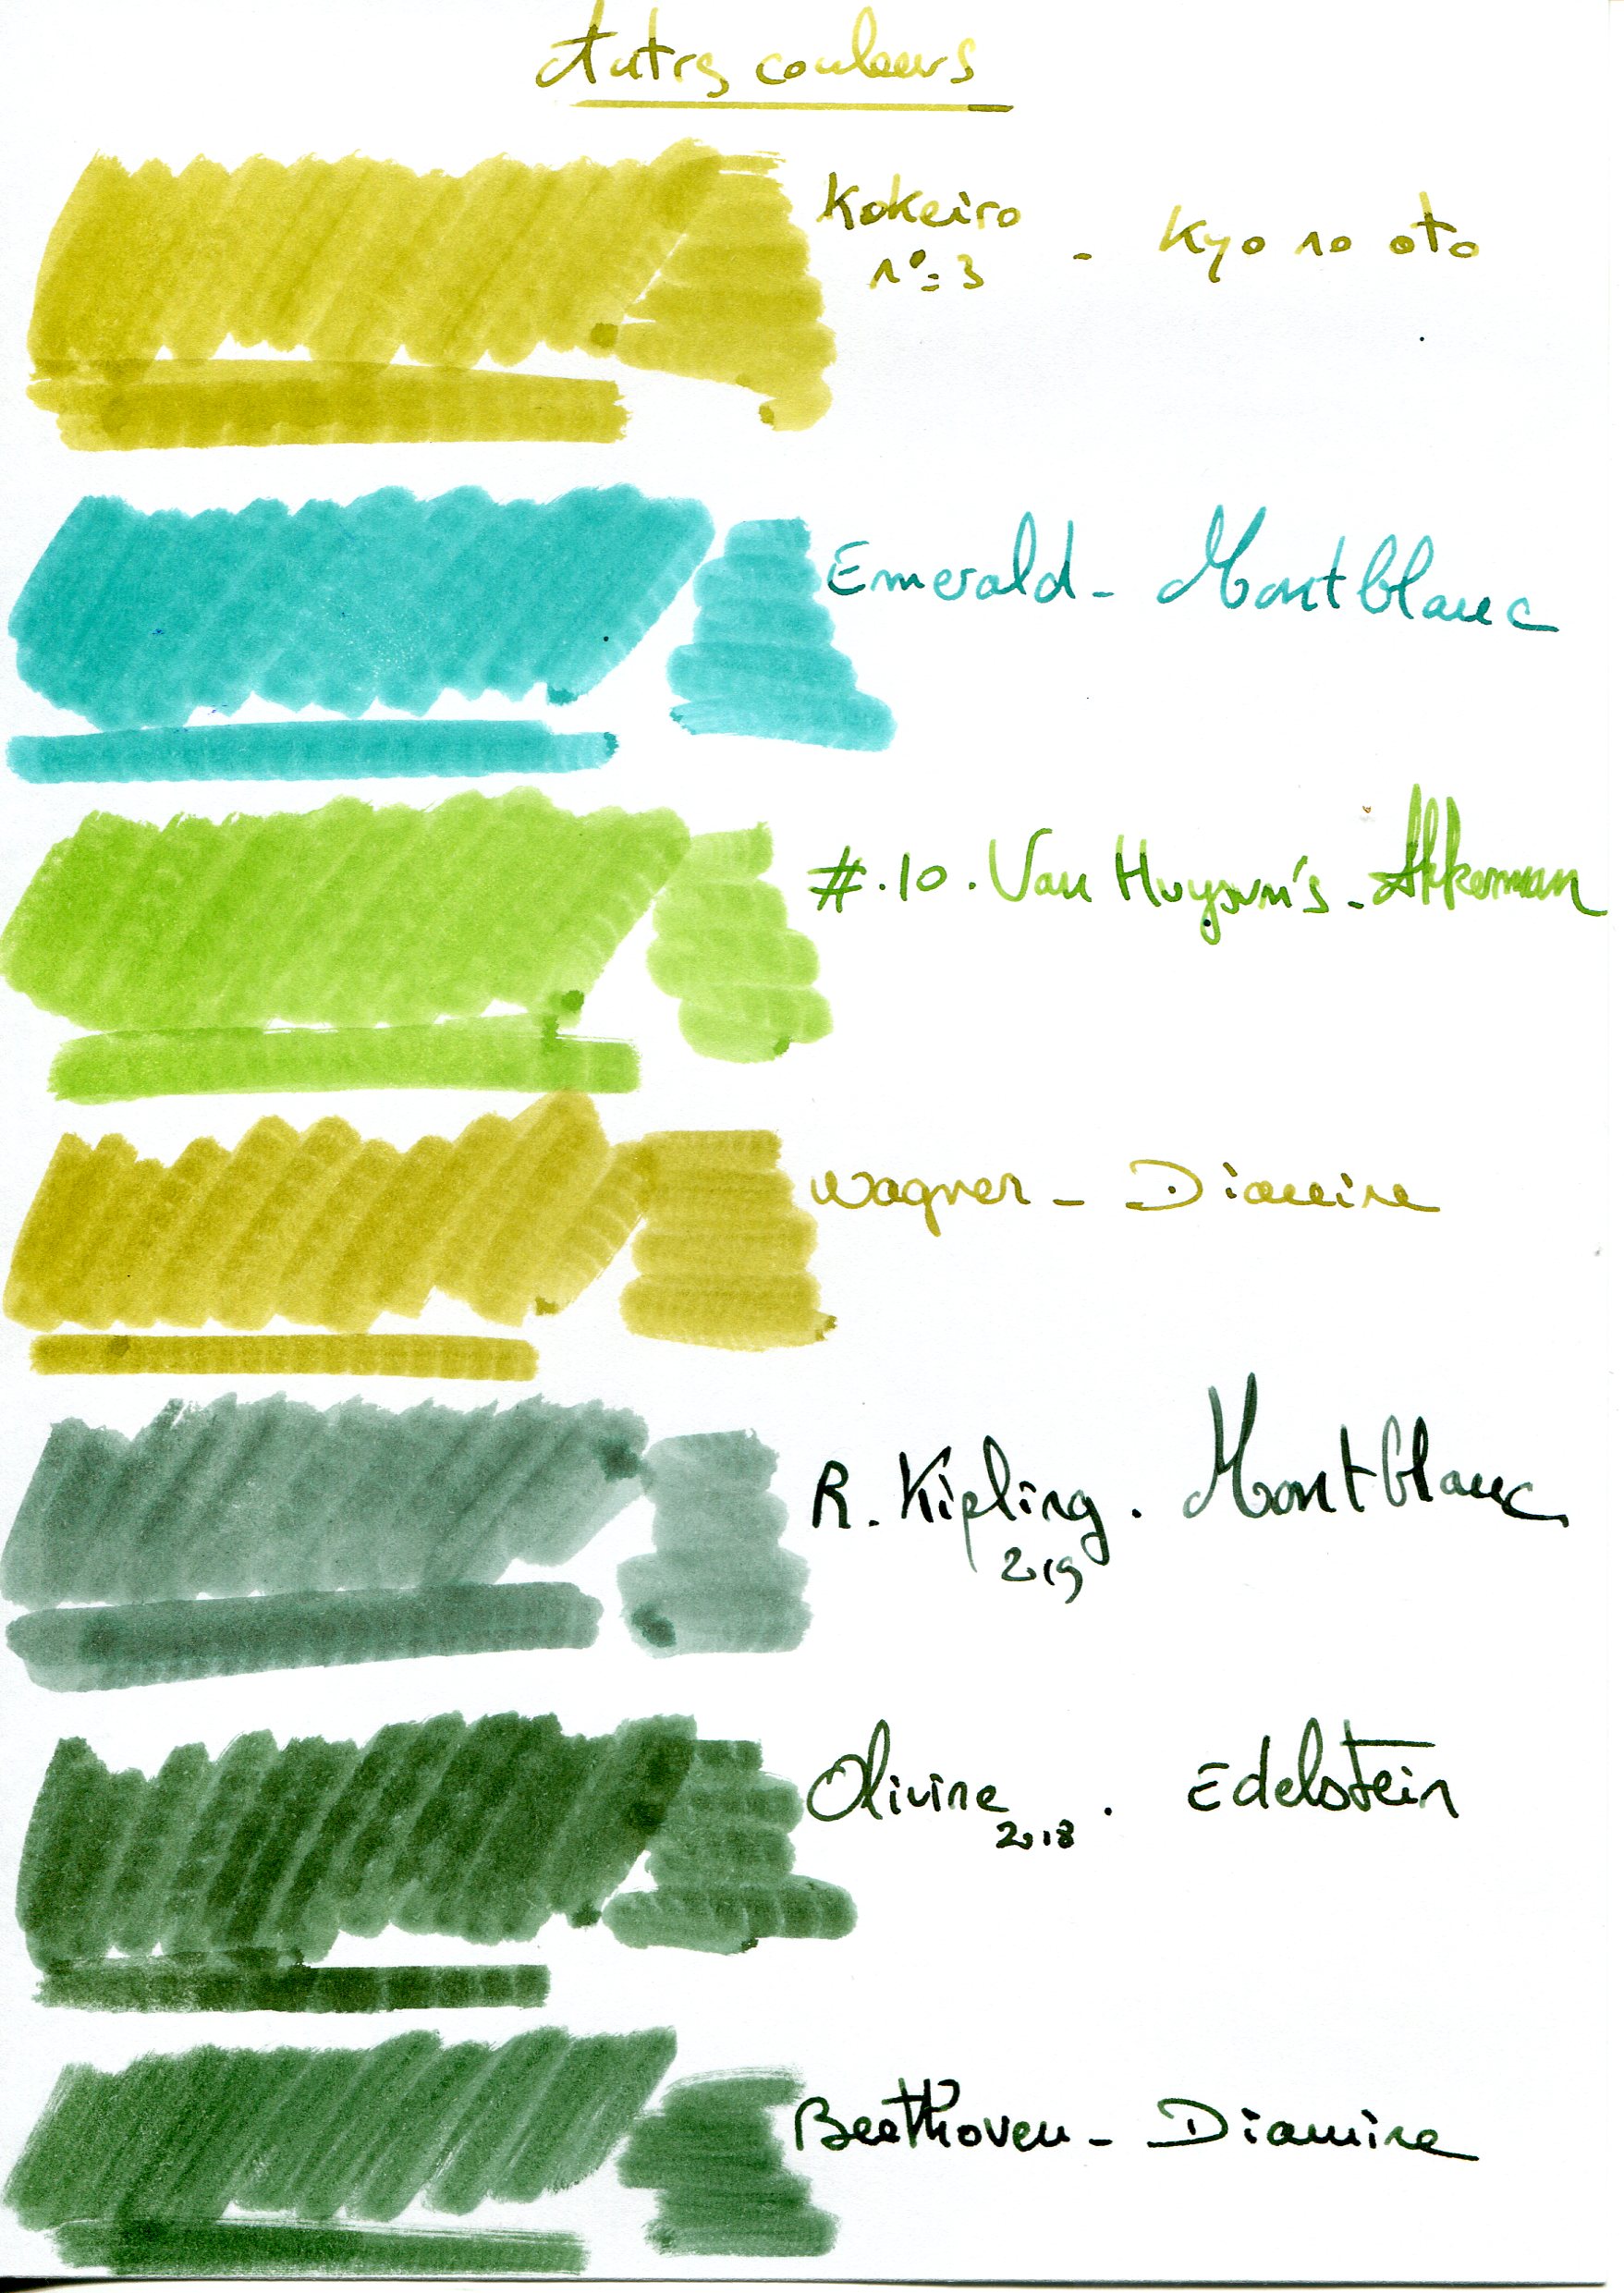 Autres couleurs
Kokeiro - Kyo no oto
n°=3
Emerald - Montblanc
#.10. Van Huysum's - Akkerman
Wagner - Diamine
R. Kipling. Montblanc
2019
Olivine . Edelstein
2018
Beethoven - Diamine